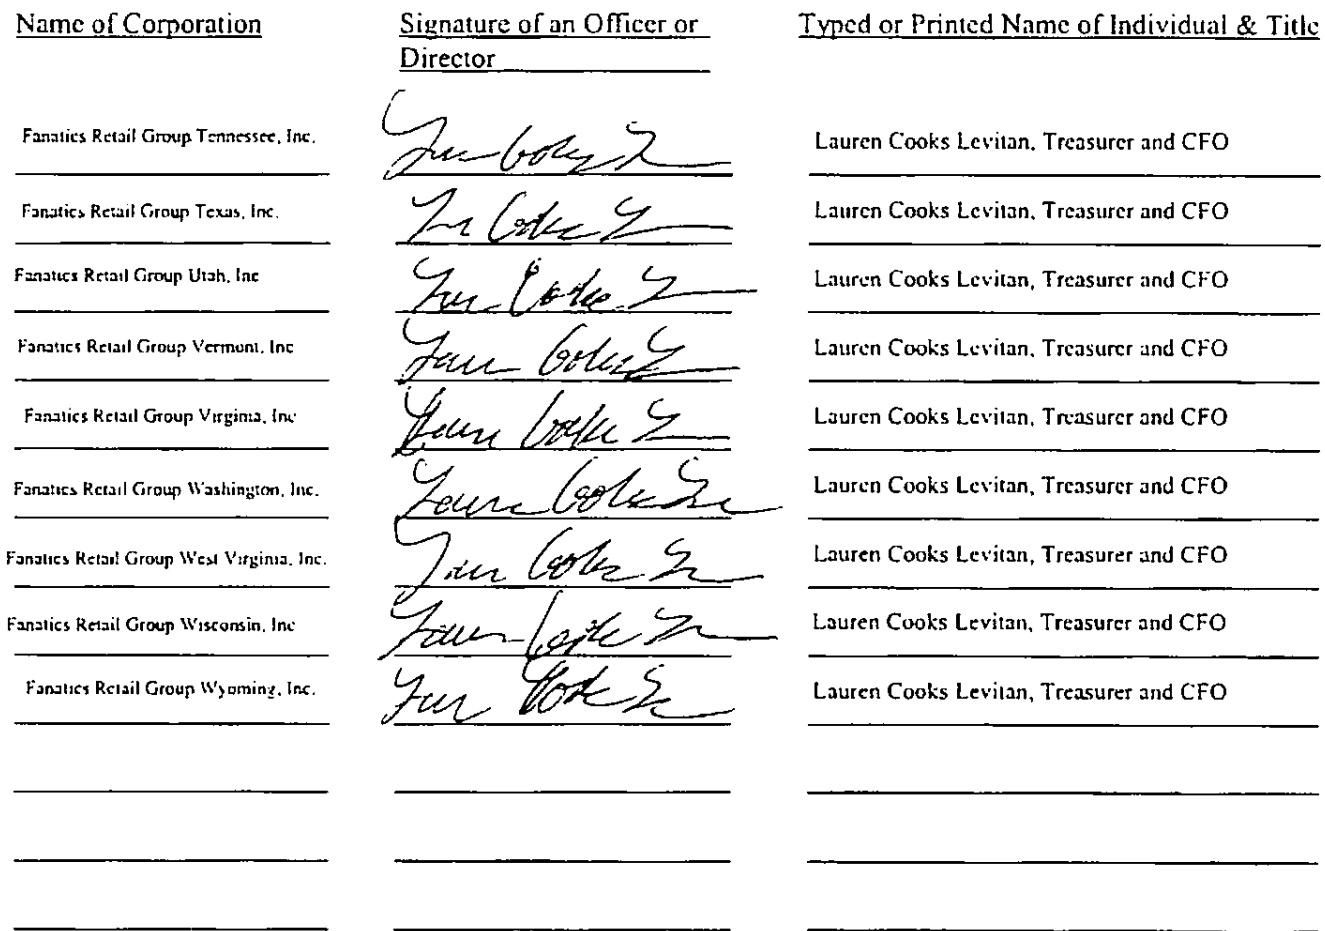 Name of Corporation Signature of an Officer or Typed or Printed Name of Individual & Title
Director
Fanatics Retail Group Tennessee, Inc. Lauren Cooks Levitan, Treasurer and CFO
Fanatics Retail Group Texas, Inc. Lauren Cooks Levitan, Treasurer and CFO
Fanatics Retail Group Utah, Inc Lauren Cooks Levitan, Treasurer and CFO
Fanatics Retail Group Vermont, Inc Lauren Cooks Levitan, Treasurer and CFO
Fanatics Retail Group Virginia, Inc Lauren Cooks Levitan, Treasurer and CFO
Fanatics Retail Group Washington, Inc. Lauren Cooks Levitan, Treasurer and CFO
Fanatics Retail Group West Virginia, Inc. Lauren Cooks Levitan, Treasurer and CFO
Fanatics Retail Group Wisconsin, Inc Lauren Cooks Levitan, Treasurer and CFO
Fanatics Retail Group Wyoming, Inc. Lauren Cooks Levitan, Treasurer and CFO